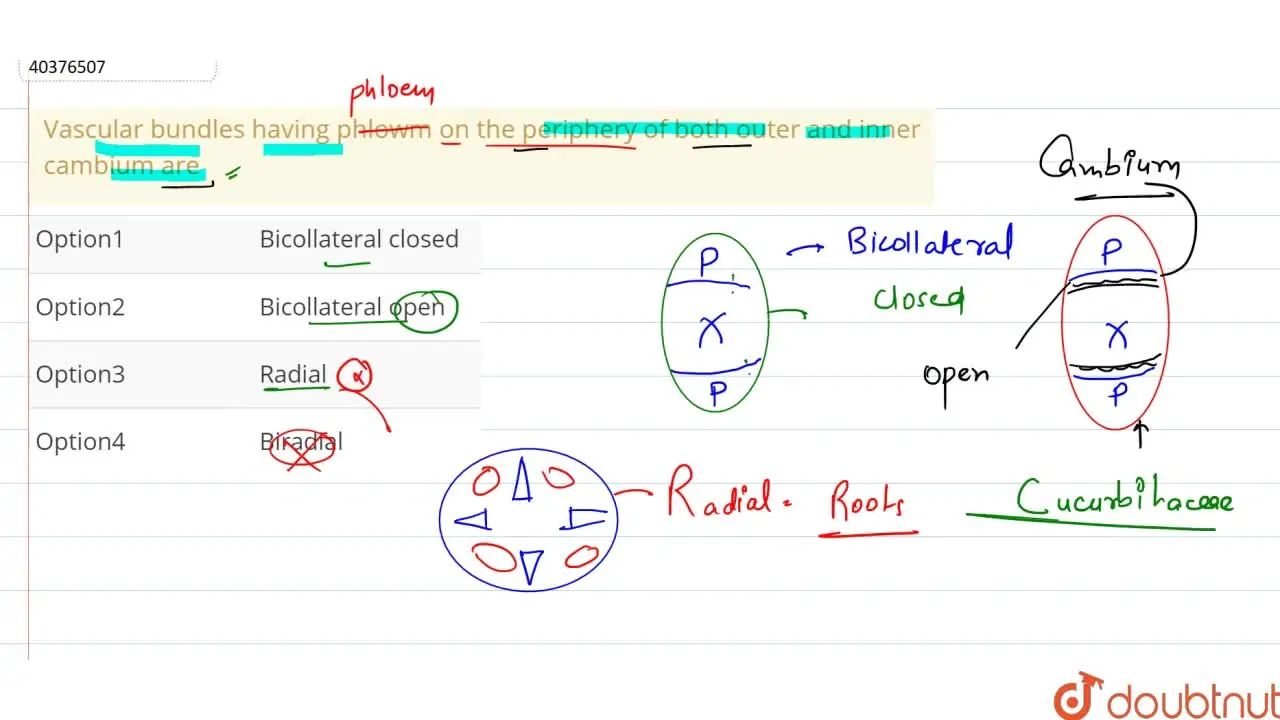 40376507
phloem
Vascular bundles having phlowm on the periphery of both outer and inner
cambium are
Cambium
Option1 Bicollateral closed
Option2 Bicollateral open
Option3 Radial
Option4 Biradial
P
X
P
Bicollateral
closed
P
X
P
open
Radial = Roots
Cucurbitaceae
doubtnut